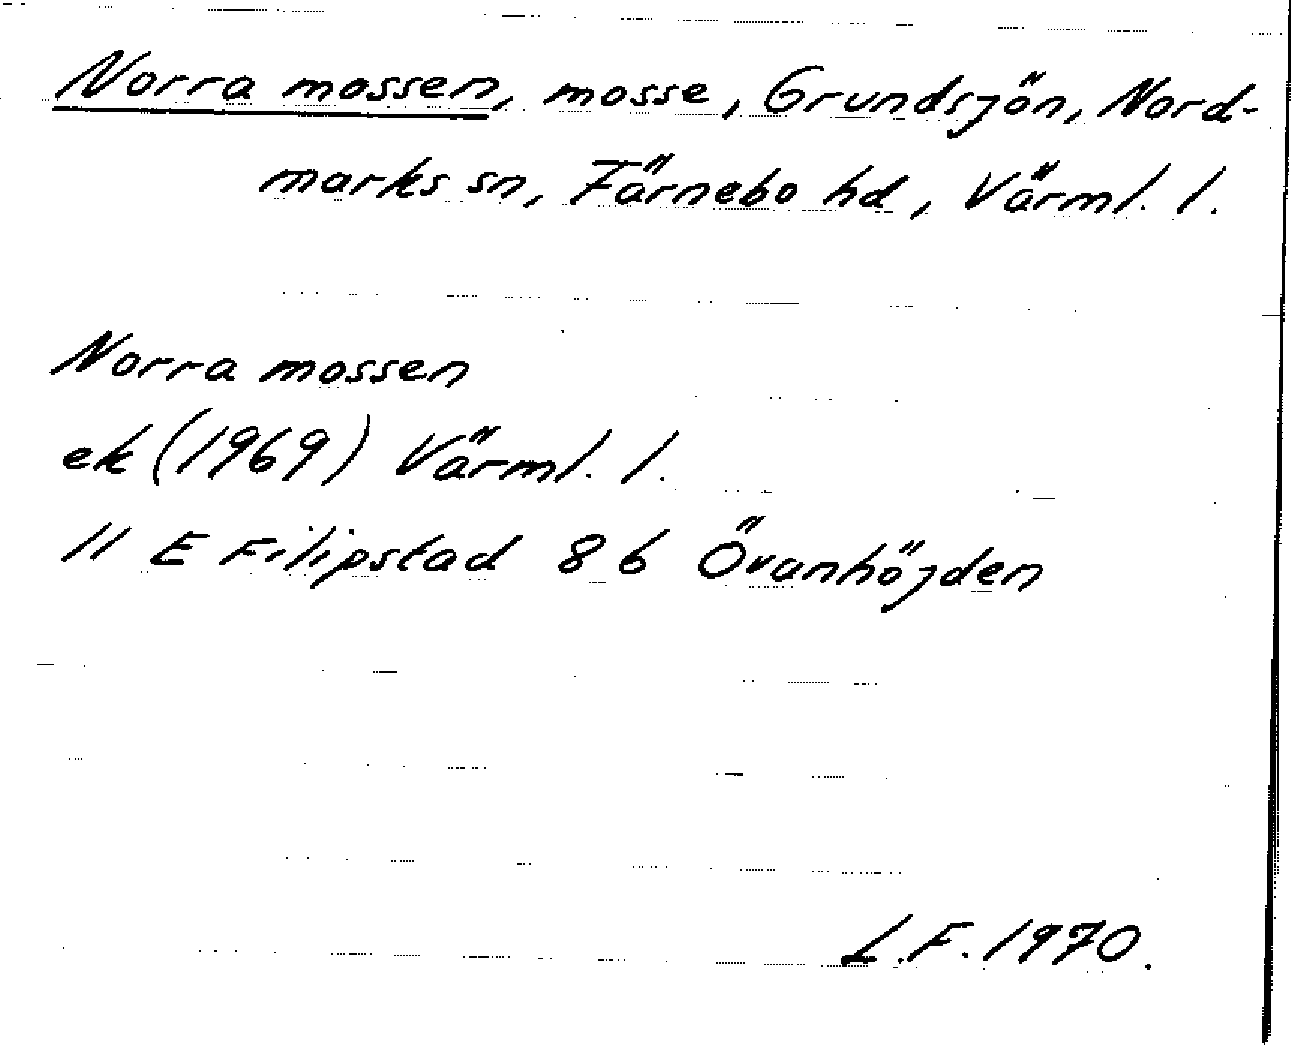 Norra mossen, mosse, Grundsjön, Nord-
marks sn, Färnebo hd, Värml. l.
Norra mossen
ek (1969) Värml. l.
11 E Filipstad 8 b Övanhöjden
L.F. 1970.